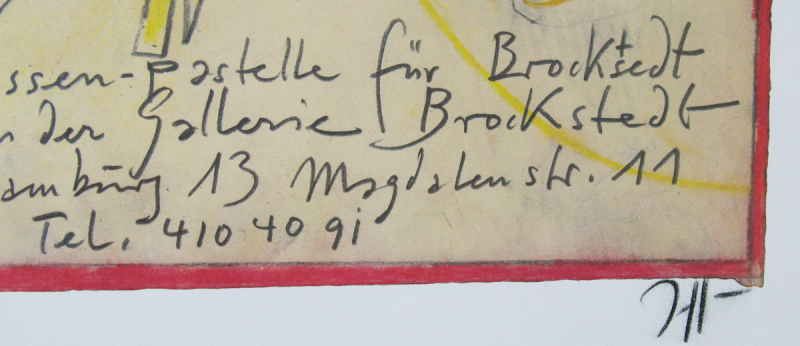 ssen-Pastelle für Brockstedt
n der Gallerie Brockstedt
amburg 13 Magdalenstr. 11
Tel. 410 40 91